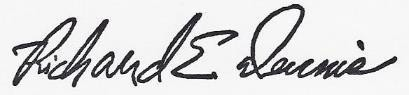 Richard E Dennis